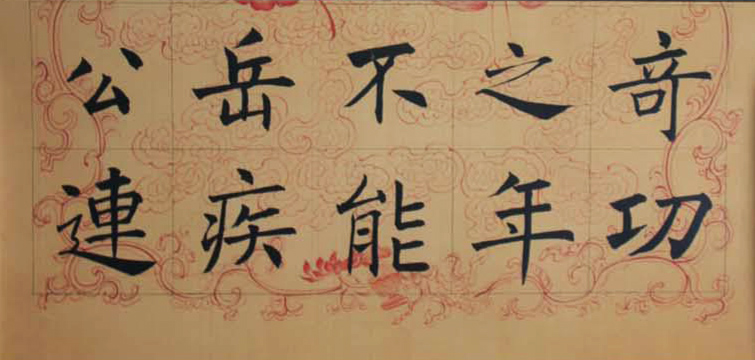 竒功
之年
不能
岳疾
公連